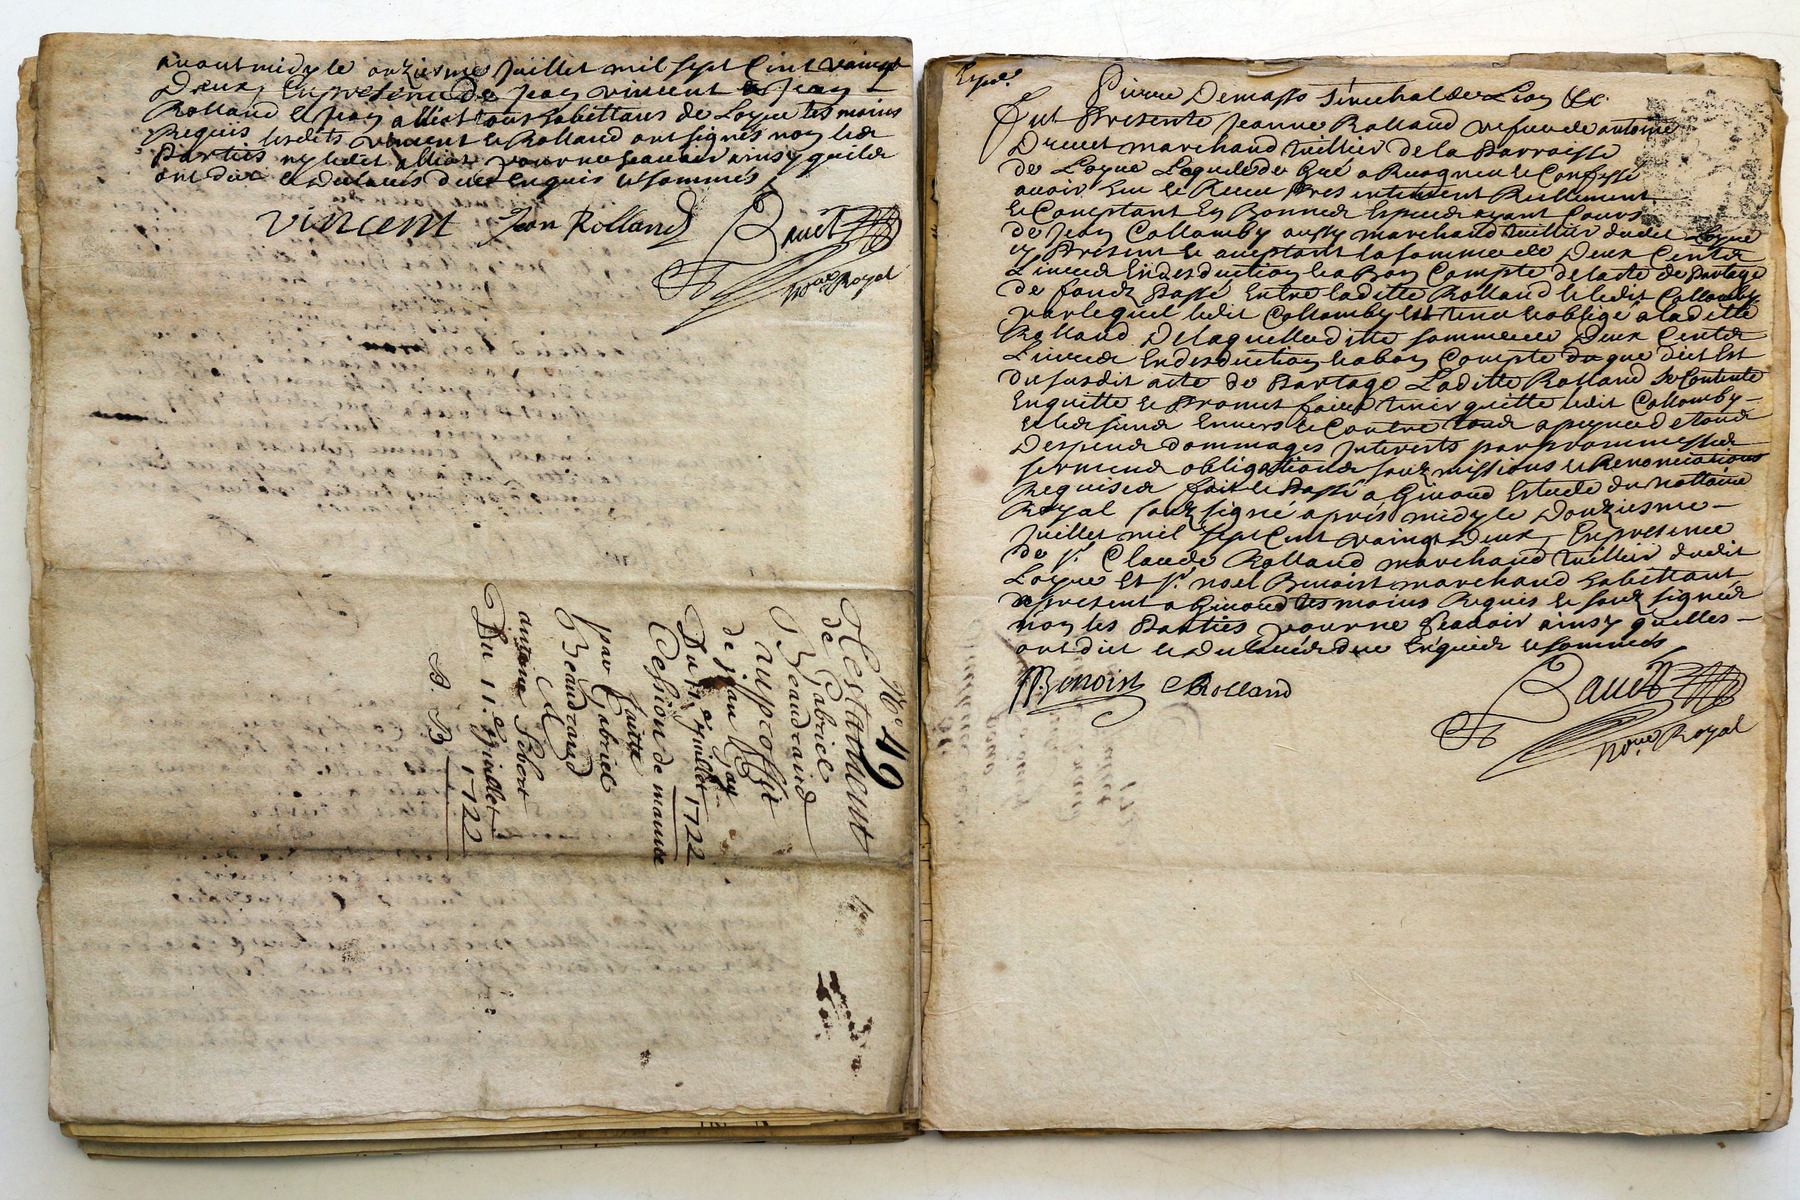 avant midy le onziesme Juillet mil sept Cent vaingt
Deux, En presence de Jean vincent Jean
Rolland et Jean alliot tous habittans de Loyre tesmoins
Requis lesdits vincent et Rolland ont signés non les
Parties ny ledit alliot pour ne scauoir ainsy quils
ont dit et declarés de ce Enquis et sommés
vincent Jean Rolland Bauet
No.re Royal
No 49
Testament
de Gabriel
Beaudrand
au proffit
de jean Gay
Du 11.e juillet 1722
Cession de
faitte
par Gabriel
Beaudrand
a
antoine Robert
Du 11.e juillet
1722
B. B
Expé.
Pierre Demasso Senechal de Lion &c.
Fut Presente Jeanne Rolland vefue de antoine
Druet marchand tuillier de la Parroisse
de Loyre Laquelle de Gré a Recogneu et Confessé
auoir Eu et Receu Presentement Reellement
et Comptant En Bonnes Especes ayant Cours
de Jean Collomby aussy marchand tuillier dudit Loyre
cy Present et aceptant la somme de Deux Centz
Liures En desduction et a Bon Compte de lacte de Partage
de fondz Passé Entre laditte Rolland et ledit Collomby
par lequel ledit Collomby Est tenu et obligé a laditte
Rolland De laquelle ditte somme de Deux Centz
Liures En desduction et a bon Compte du que dict Est
du susdit acte de Partage Laditte Rolland Se Contente
Enquitte et Promet faire tenir quitte ledit Collomby
et les siens Enuers et Contre tous a peyne de tous
Despens dommages Interests par promesses
sermens obligations soubzmissions et Renonciations
Requises fait et Passé a Giuord Estude du nottaire
Royal soubzsigné apres midy le Douziesme
Juillet mil sept Cent vaingt Deux, En presence
de Sr. Claude Rolland marchand tuillier dudit
Loyre Et Sr. noel Benoist marchand habittant
de present a Giuord tesmoins Requis et soubzsignes
non les Parties pour ne scauoir ainsy quelles
ont dict et declarés de ce Enquis et sommés
N. Benoist C Rolland Bauet
No.re Royal